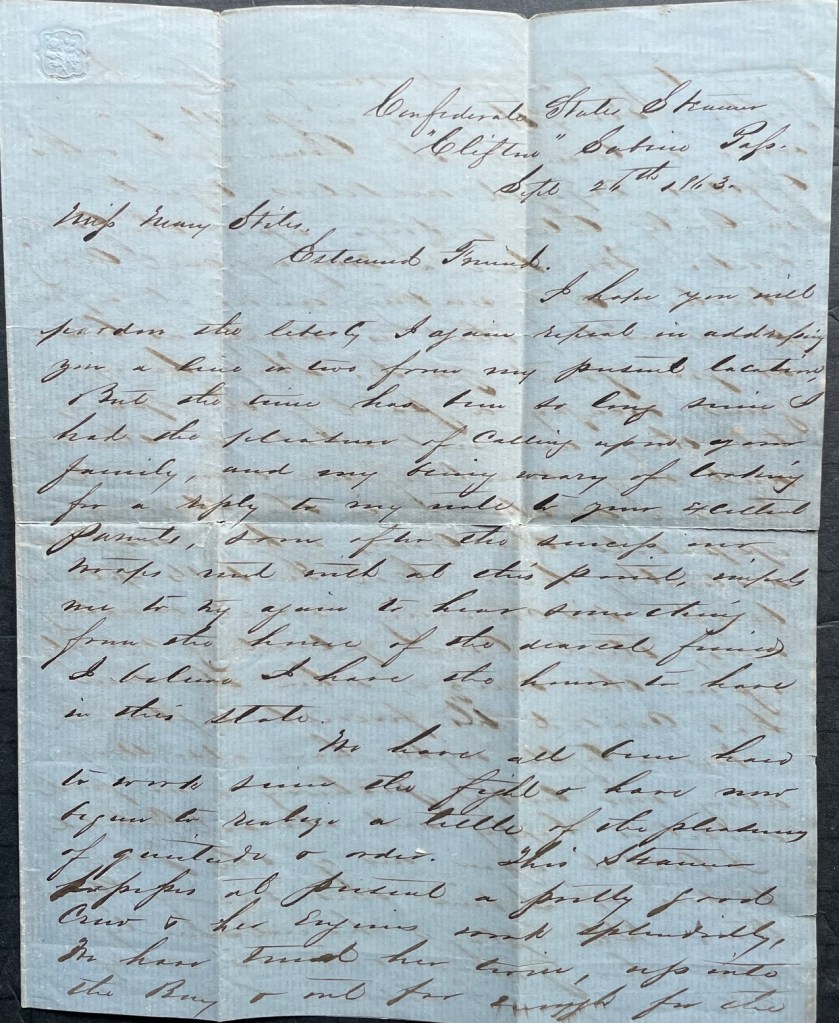 Confederate States Steamer
"Clifton" Sabine Pass.
Sept 26th 1863.
Miss Mary Stiles.
Esteemed Friend.
I hope you will
pardon the liberty I again repeat in addressing
you a line or two from my present location,
But the time has been so long since I
had the pleasure of calling upon your
family, and my being weary of looking
for a reply to my note to your excellent
Parents, soon after the success our
troops met with at this point, impels
me to try again to hear something
from the home of the dearest friend
I believe I have the honor to have
in this state.
We have all been hard
to work since the fight & have now
begun to realize a little of the pleasures
of quietude & order. This Steamer
possesses at present a pretty good
Crew & her Engines work splendidly,
We have tried her twice, up into
the Bay & out far enough for the